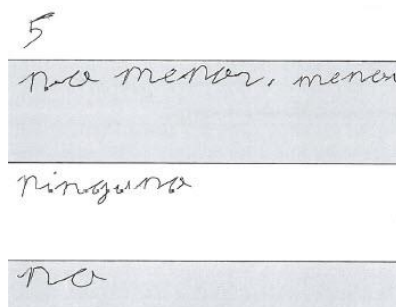 5
no menor, menor
ninguna
no